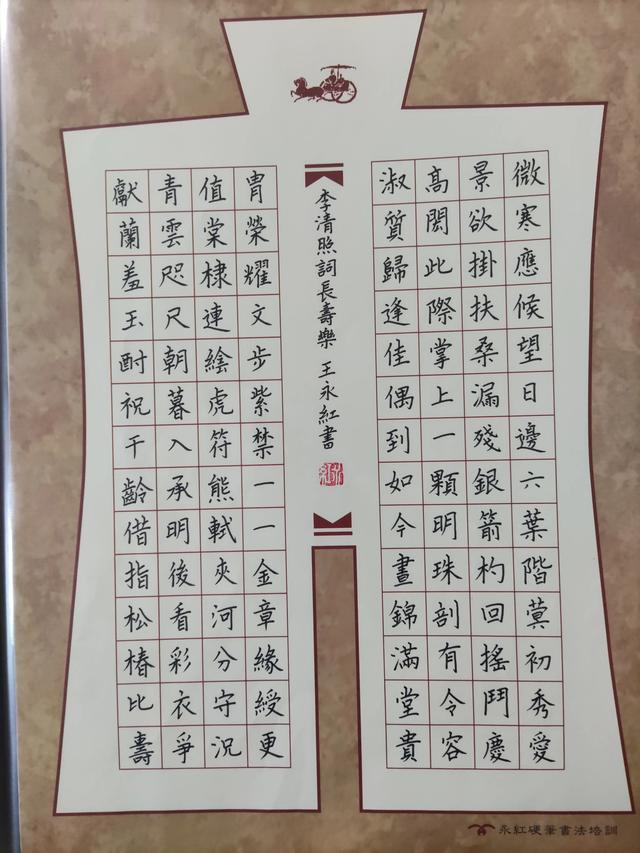 微寒應候望日邊六葉階蓂初秀愛
景欲掛扶桑漏殘銀箭杓回搖鬥慶
高閎此際掌上一顆明珠剖有令容
淑質歸逢佳偶到如今晝錦滿堂貴
李清照詞長壽樂 王永紅書
胄榮耀文步紫禁一一金章緣綬更
值棠棣連繪虎符熊軾夾河分守況
青雲咫尺朝暮入承明後看彩衣爭
獻蘭羞玉酎祝千齡借指松椿比壽
永紅硬筆書法培訓